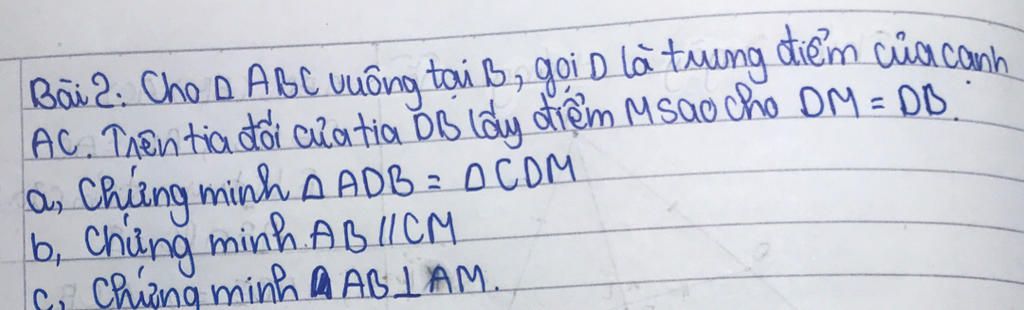 Bài 2: Cho Δ ABC vuông tại B, gọi D là trung điểm của cạnh
AC. Trên tia đối của tia DB lấy điểm M sao cho DM = DB.
a, Chứng minh Δ ADB = Δ CDM
b, Chứng minh AB // CM
c, Chứng minh AB ⊥ AM.